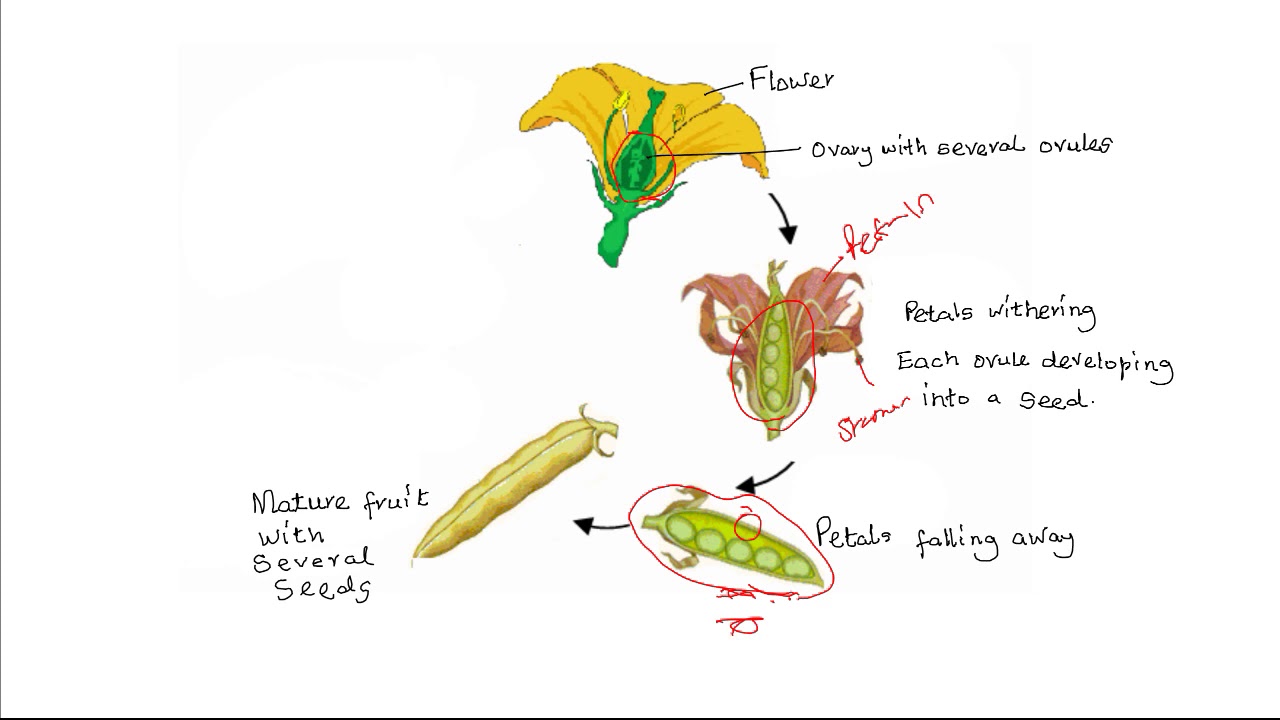 Flower
Ovary with several ovules
Petals withering
Each ovule developing
into a seed.
Petals falling away
Mature fruit
with
Several
Seeds